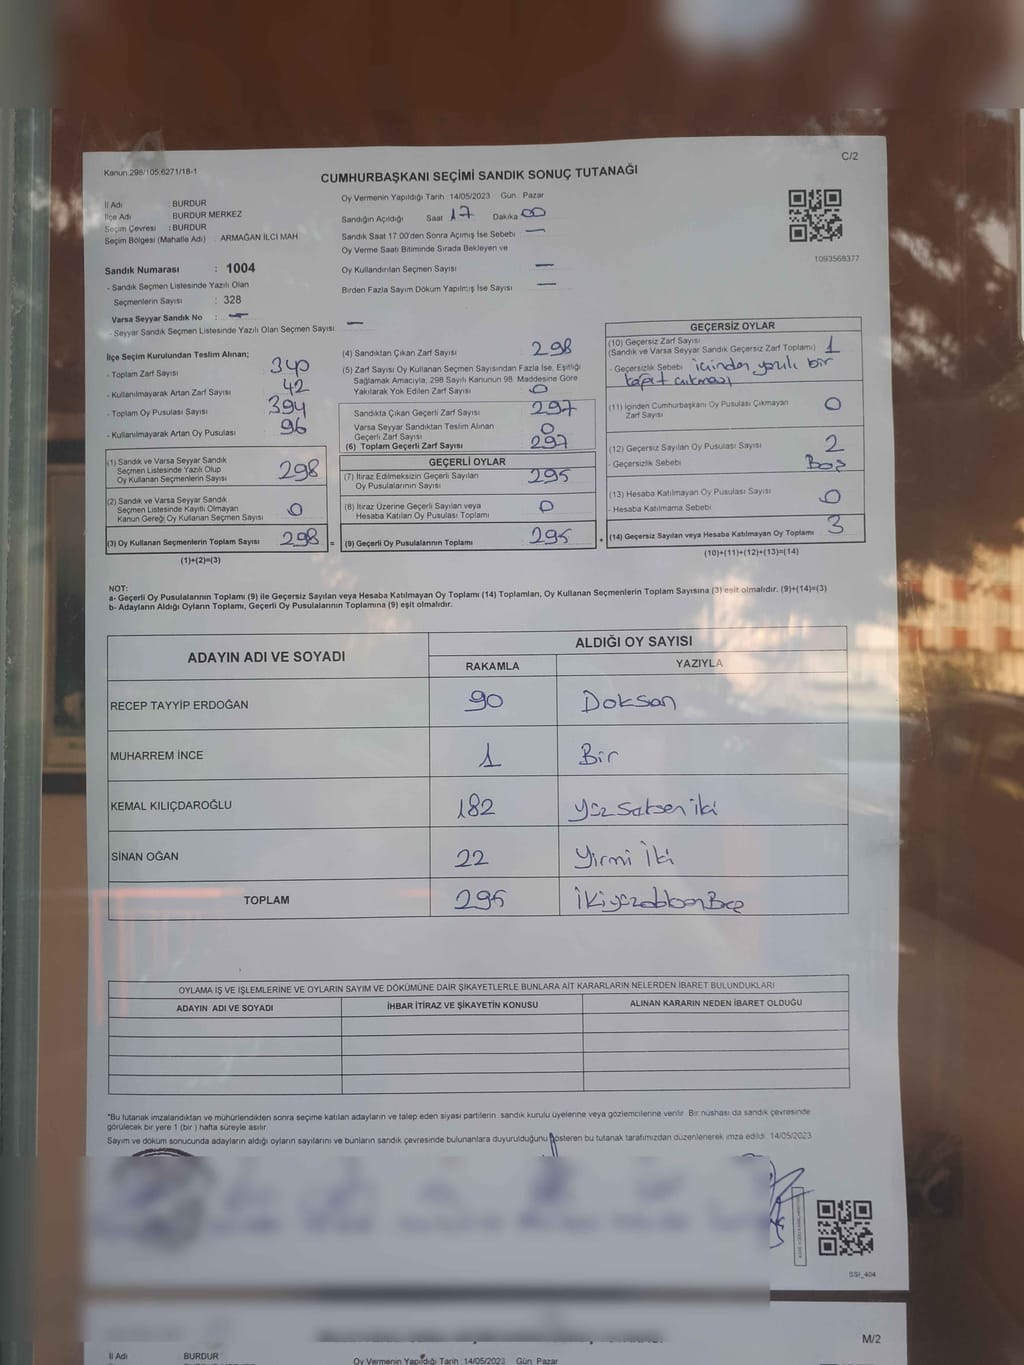 Kanun.298/105.6271/18-1
C/2
CUMHURBAŞKANI SEÇİMİ SANDIK SONUÇ TUTANAĞI
İl Adı : BURDUR
İlçe Adı : BURDUR MERKEZ
Seçim Çevresi : BURDUR
Seçim Bölgesi (Mahalle Adı) : ARMAĞAN İLCİ MAH
Sandık Numarası : 1004
- Sandık Seçmen Listesinde Yazılı Olan
Seçmenlerin Sayısı : 328
Varsa Seyyar Sandık No : —
- Seyyar Sandık Seçmen Listesinde Yazılı Olan Seçmen Sayısı: —
Oy Vermenin Yapıldığı Tarih :14/05/2023 Gün : Pazar
Sandığın Açıldığı Saat 17 Dakika 00
Sandık Saat 17.00'den Sonra Açılmış İse Sebebi —
Oy Verme Saati Bitiminde Sırada Bekleyen ve
Oy Kullandırılan Seçmen Sayısı —
Birden Fazla Sayım Döküm Yapılmış İse Sayısı —
1093568377
İlçe Seçim Kurulundan Teslim Alınan;
- Toplam Zarf Sayısı 340
- Kullanılmayarak Artan Zarf Sayısı 42
- Toplam Oy Pusulası Sayısı 394
- Kullanılmayarak Artan Oy Pusulası 96
(1) Sandık ve Varsa Seyyar Sandık
Seçmen Listesinde Yazılı Olup
Oy Kullanan Seçmenlerin Sayısı 298
(2) Sandık ve Varsa Seyyar Sandık
Seçmen Listesinde Kayıtlı Olmayan
Kanun Gereği Oy Kullanan Seçmen Sayısı 0
(3) Oy Kullanan Seçmenlerin Toplam Sayısı 298 =
(1)+(2)=(3)
(4) Sandıktan Çıkan Zarf Sayısı 298
(5) Zarf Sayısı Oy Kullanan Seçmen Sayısından Fazla İse, Eşitliği
Sağlamak Amacıyla, 298 Sayılı Kanunun 98. Maddesine Göre
Yakılarak Yok Edilen Zarf Sayısı 0
Sandıkta Çıkan Geçerli Zarf Sayısı 297
Varsa Seyyar Sandıktan Teslim Alınan
Geçerli Zarf Sayısı 0
(6) Toplam Geçerli Zarf Sayısı 297
GEÇERLİ OYLAR
(7) İtiraz Edilmeksizin Geçerli Sayılan
Oy Pusulalarının Sayısı 295
(8) İtiraz Üzerine Geçerli Sayılan veya
Hesaba Katılan Oy Pusulası Toplamı 0
(9) Geçerli Oy Pusulalarının Toplamı 295 +
GEÇERSİZ OYLAR
(10) Geçersiz Zarf Sayısı
(Sandık ve Varsa Seyyar Sandık Geçersiz Zarf Toplamı) 1
- Geçersizlik Sebebi içinden yazılı bir
kağıt çıkması
(11) İçinden Cumhurbaşkanı Oy Pusulası Çıkmayan
Zarf Sayısı 0
(12) Geçersiz Sayılan Oy Pusulası Sayısı 2
- Geçersizlik Sebebi Boş
(13) Hesaba Katılmayan Oy Pusulası Sayısı 0
- Hesaba Katılmama Sebebi
(14) Geçersiz Sayılan veya Hesaba Katılmayan Oy Toplamı 3
(10)+(11)+(12)+(13)=(14)
NOT:
a- Geçerli Oy Pusulalarının Toplamı (9) ile Geçersiz Sayılan veya Hesaba Katılmayan Oy Toplamı (14) Toplamları, Oy Kullanan Seçmenlerin Toplam Sayısına (3) eşit olmalıdır. (9)+(14)=(3)
b- Adayların Aldığı Oyların Toplamı, Geçerli Oy Pusulalarının Toplamına (9) eşit olmalıdır.
ADAYIN ADI VE SOYADI
ALDIĞI OY SAYISI
RAKAMLA YAZIYLA
RECEP TAYYİP ERDOĞAN 90 Doksan
MUHARREM İNCE 1 Bir
KEMAL KILIÇDAROĞLU 182 Yüz Seksen iki
SİNAN OĞAN 22 Yirmi İki
TOPLAM 295 İkiyüz Beş
OYLAMA İŞ VE İŞLEMLERİNE VE OYLARIN SAYIM VE DÖKÜMÜNE DAİR ŞİKAYETLERLE BUNLARA AİT KARARLARIN NELERDEN İBARET BULUNDUKLARI
ADAYIN ADI VE SOYADI İHBAR İTİRAZ VE ŞİKAYETİN KONUSU ALINAN KARARIN NEDEN İBARET OLDUĞU
*Bu tutanak imzalandıktan ve mühürlendikten sonra seçime katılan adayların ve talep eden siyasi partilerin sandık kurulu üyelerine veya gözlemcilerine verilir. Bir nüshası da sandık çevresinde
görülecek bir yere 1 (bir ) hafta süreyle asılır.
Sayım ve döküm sonucunda adayların aldığı oyların sayılarını ve bunların sandık çevresinde bulunanlara duyurulduğunu gösteren bu tutanak tarafımızdan düzenlenerek imza edildi. 14/05/2023
SSI_404
M/2
İl Adı : BURDUR
Oy Vermenin Yapıldığı Tarih :14/05/2023 Gün: Pazar